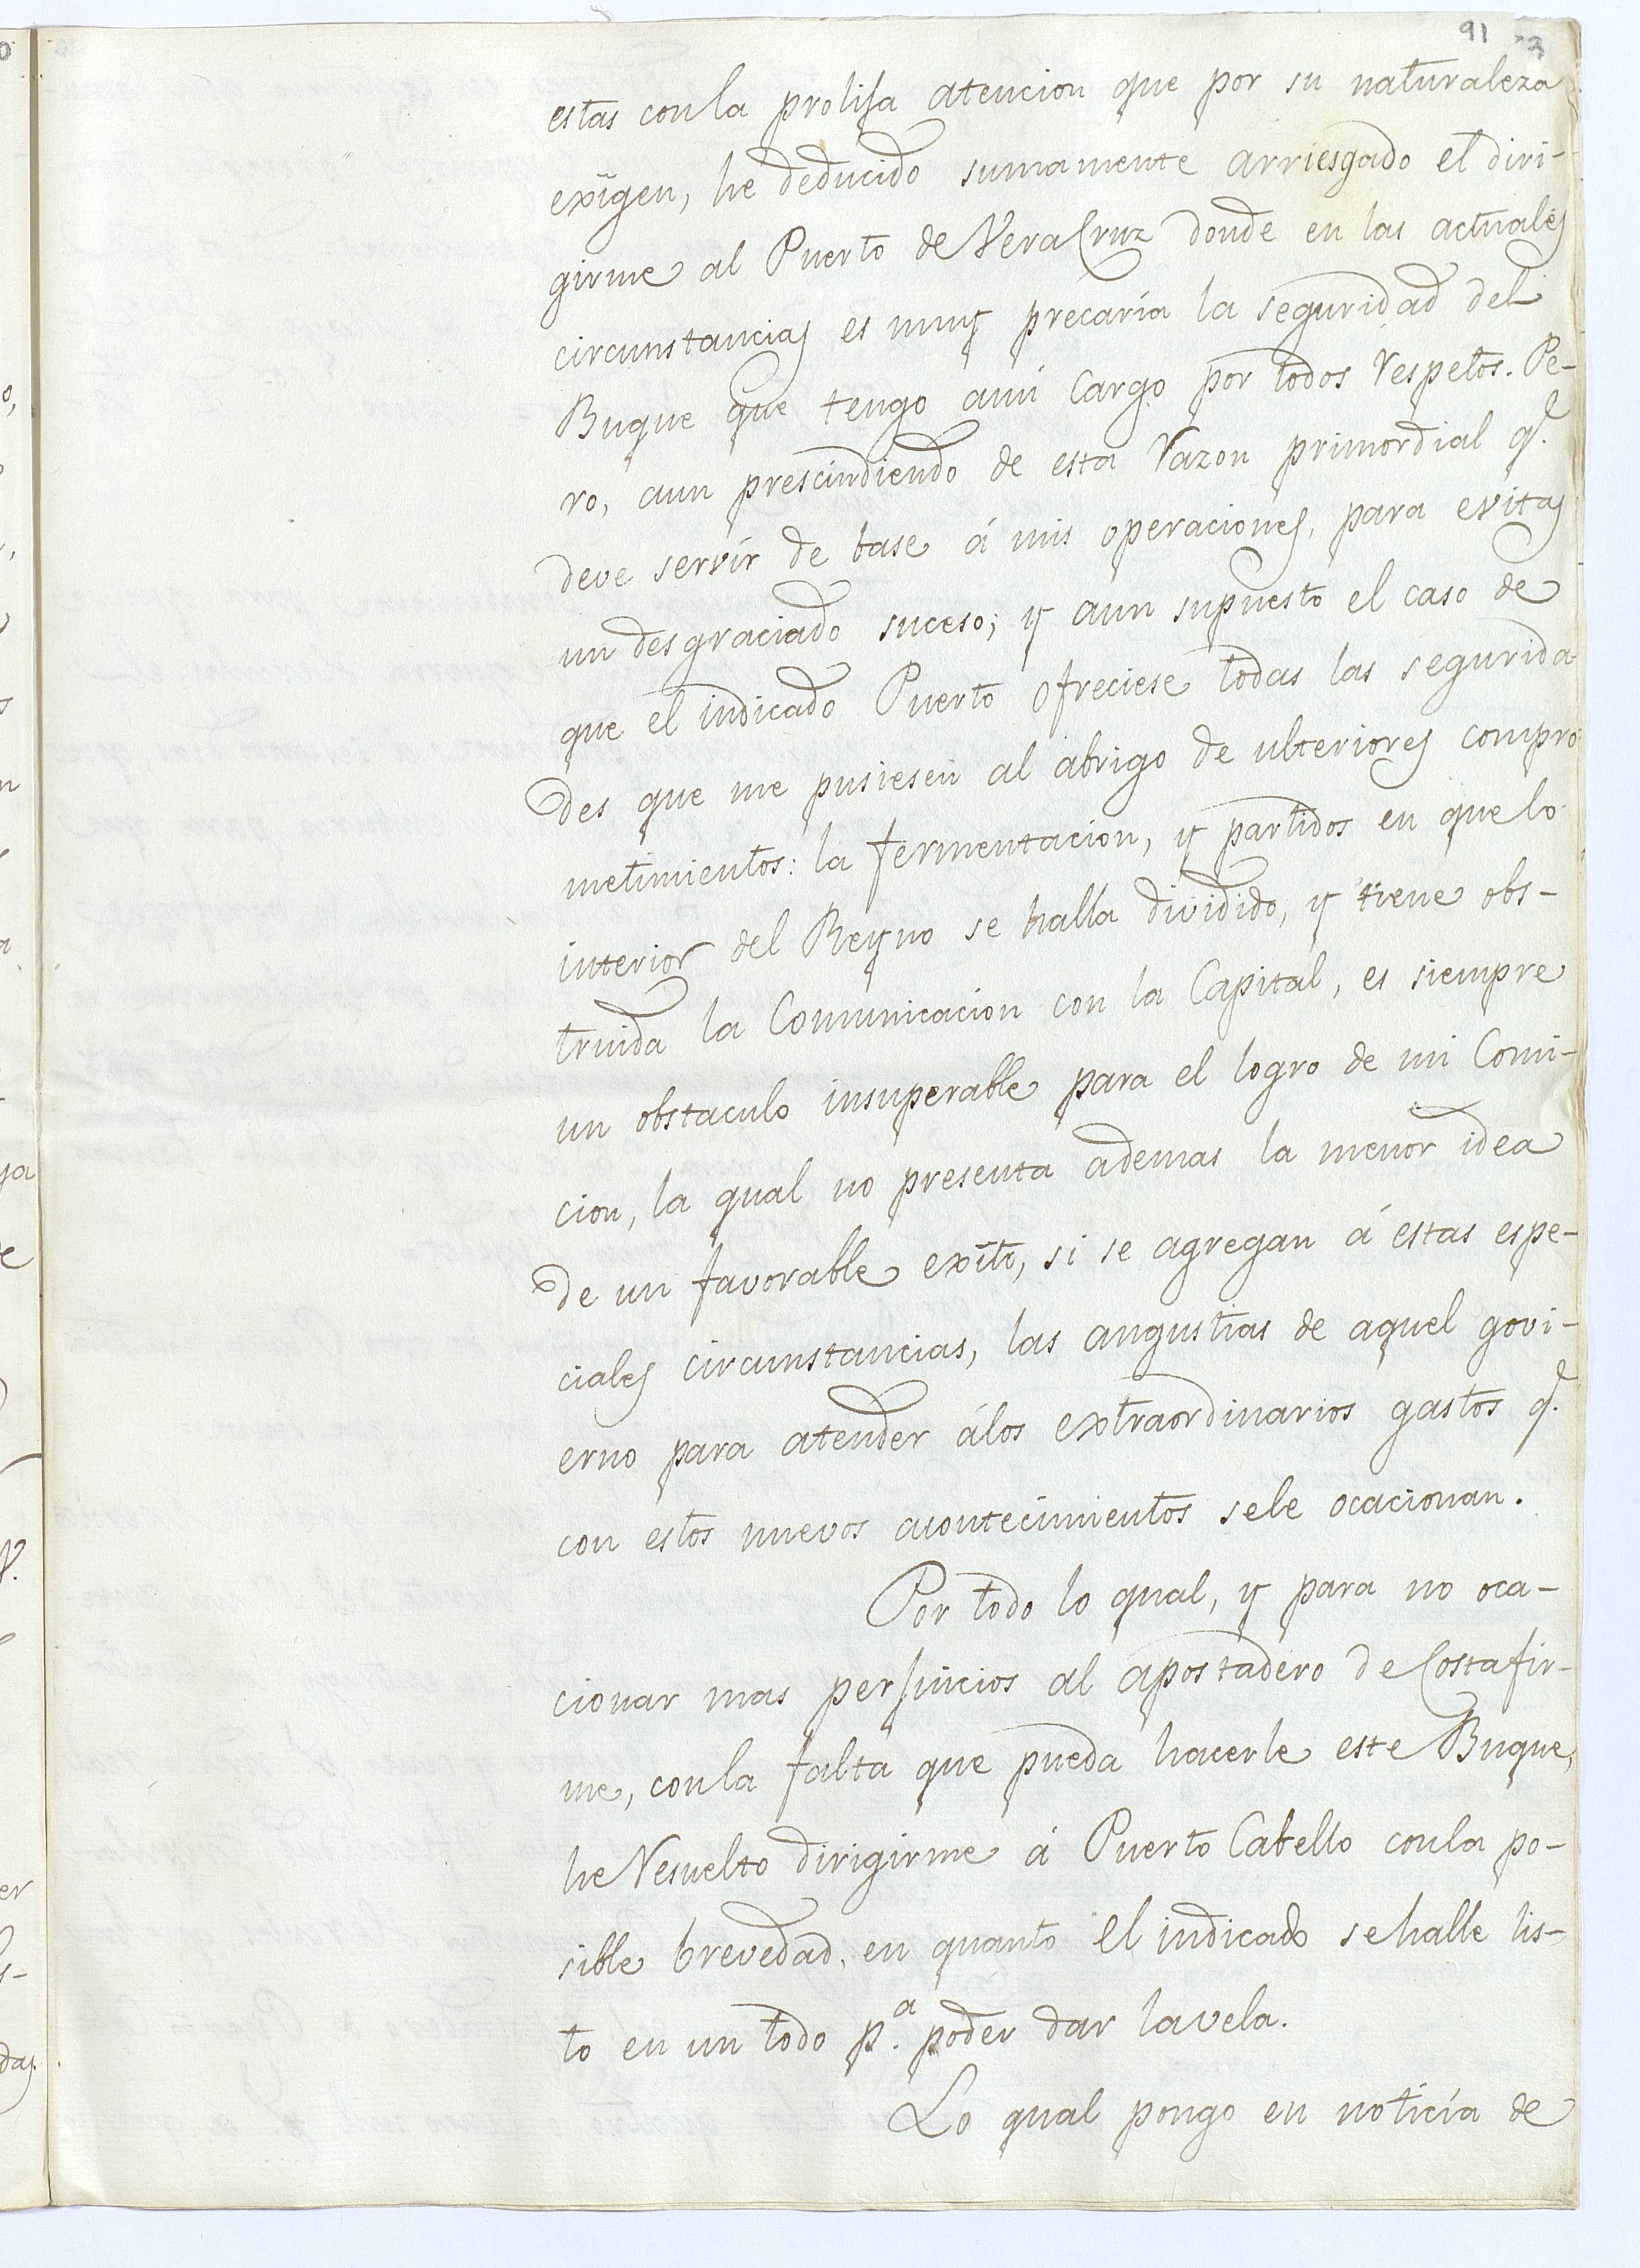 91
estas conla prolija atencion que por su naturaleza
exîgen, he deducido sumamente arriesgado el diri-
girme al Puerto de VeraCruz donde en las actuales
circunstancias es muy precaria la seguridad del
Buque que tengo ami Cargo por todos respetos. Pe-
ro, aun prescindiendo de esta razon primordial q.e
deve servir de base á mis operaciones, para evitar
un desgraciado suceso; y aun supuesto el caso de
que el indicado Puerto ofreciese todas las segurida
des que me pusiesen al abrigo de ulteriores compro
metimientos: la fermentacion, y partidos en que lo
interior del Reyno se halla dividido, y tiene obs-
truida la Comunicacion con la Capital, es siempre
un obstaculo insuperable para el logro de mi Comi-
cion, la qual no presenta ademas la menor idea
de un favorable exîto, si se agregan á estas espe-
ciales circunstancias, las angustias de aquel govi-
erno para atender álos extraordinarios gastos q.e
con estos nuevos acontecimientos sele ocacionan.
Por todo lo qual, y para no oca-
cionar mas perjuicios al apostadero de Costafir-
me, conla falta que pueda hacerle este Buque,
he resuelto dirigirme á Puerto Cabello conla po-
sible brevedad, en quanto el indicado sehalle lis-
to en un todo p.a poder dar lavela.
Lo qual pongo en noticia de